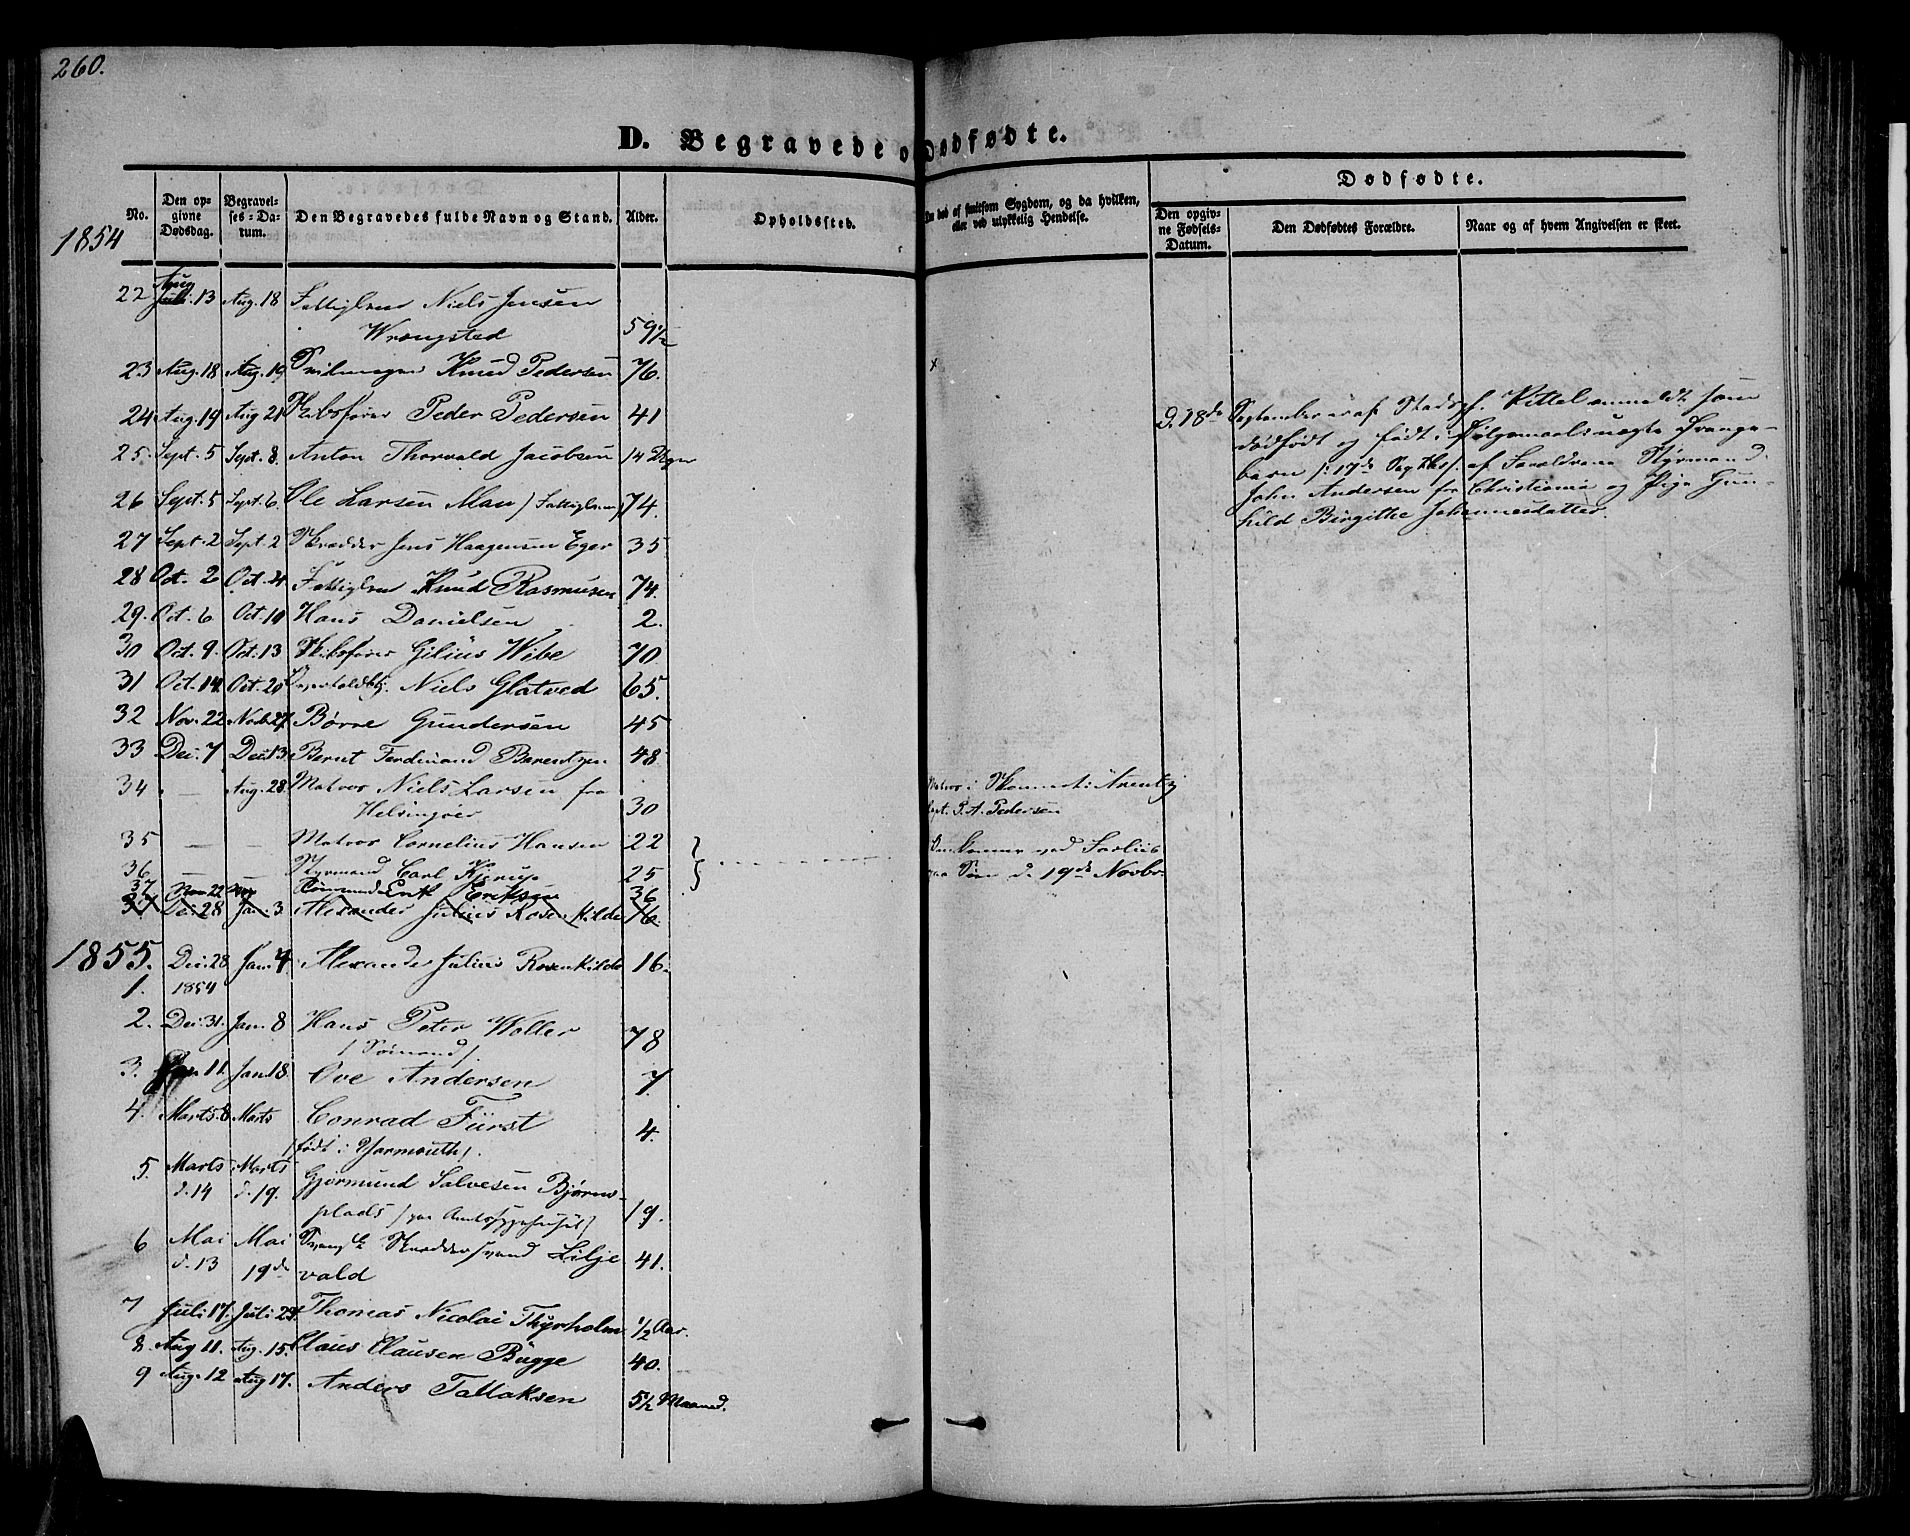 260.
D. Begravede o Dødfødte.
No.
Den opgivne Dødsdag.
Begravelses-Datum.
Den Begravedes fulde Navn og Stand.
Alder.
Opholdssted.
død af smitsom Sygdom, og da hvilken, eller ved ulykkelig Hendelse.
Dødfødte.
Den opgivne Fødsels-Datum.
Den Dødfødtes Forældre.
Naar og af hvem Angivelsen er skeet.
1854
22 Aug 13 Aug. 18 Fattiglem Niels Jensen
Wrængsted 59 1/2
23 Aug. 18 Aug. 19 Knud Pedersen 76.
24 Aug. 19 Aug 21 Skibsfører Peder Pedersen 41
25. Sept. 5 Sept. 8. Anton Thorvald Jacobsen 14 Dage
26 Sept. 5 Sept. 6. Ole Larsen Mau / Fattiglem / 74.
27 Sept. 2 Sept. 2 Skrædder Jens Haagensen Eger 35
28 Oct. 2 Oct. 4 Fattiglem Knud Rasmusen 74.
29. Oct. 6 Oct. 10 Hans Danielsen 2.
30 Oct. 9. Oct. 13 Skibsfører Gilius Wibe 70
31 Oct. 14 Oct. 20 Niels Glatved 65.
32 Nov. 22 Novb 27 Børre Gundersen 45
33 Dec. 7 Dec. 13 Bernt Ferdinand Barentzen 48
34 — Aug. 28. Matros Niels Larsen fra
Helsingøer 30
Matros i Skonnert
Capt. P. A. Pedersen
35 — — Matros Cornelius Hansen 22
36 — — Styrmand Carl Kjerup 25
Omkommen ved Forliis
paa Søen d. 19de Novbr.
37 Nov 22 Erik Eriksen 36
37. Dec. 28 Jan. 3. Alexander Julius Rosenkilde 16.
D. 18de September er af Stads Kittel anmeldt som
dødfødt og født i Dølgsmaal: uægte Drenge-
barn af Forældrene Styrmand
John Andersen fra Christiania og Pige Gun-
hild Birgithe Johannesdatter.
1855.
1. Dec. 28 1854 Jan. 4 Alexander Julius Rosenkilde 16.
2. Dec. 31. Jan. 8 Hans Peter Woller
/ Sømand /. 78
3. Jan 11. Jan. 18. Ove Andersen 7.
4. Marts 8 Marts Conrad Fürst
/ født i Yarmouth /. 4.
5. Marts d. 14 Marts d. 19. Gjermund Salvesen Bjørns-
plads / paa Amtssygehuset / 19.
6 Mai d. 13 Mai 19de Svensk Skræddersvend Lilje
vald 41.
7 Juli 17. Juli 24 Thomas Nicolai Thyrholm 1/2 Aar.
8. Aug 11. Aug. 15. Claus Clausen Bugge 40.
9 Aug. 12 Aug 17. Anders Tallaksen 5 1/2 Maaned.